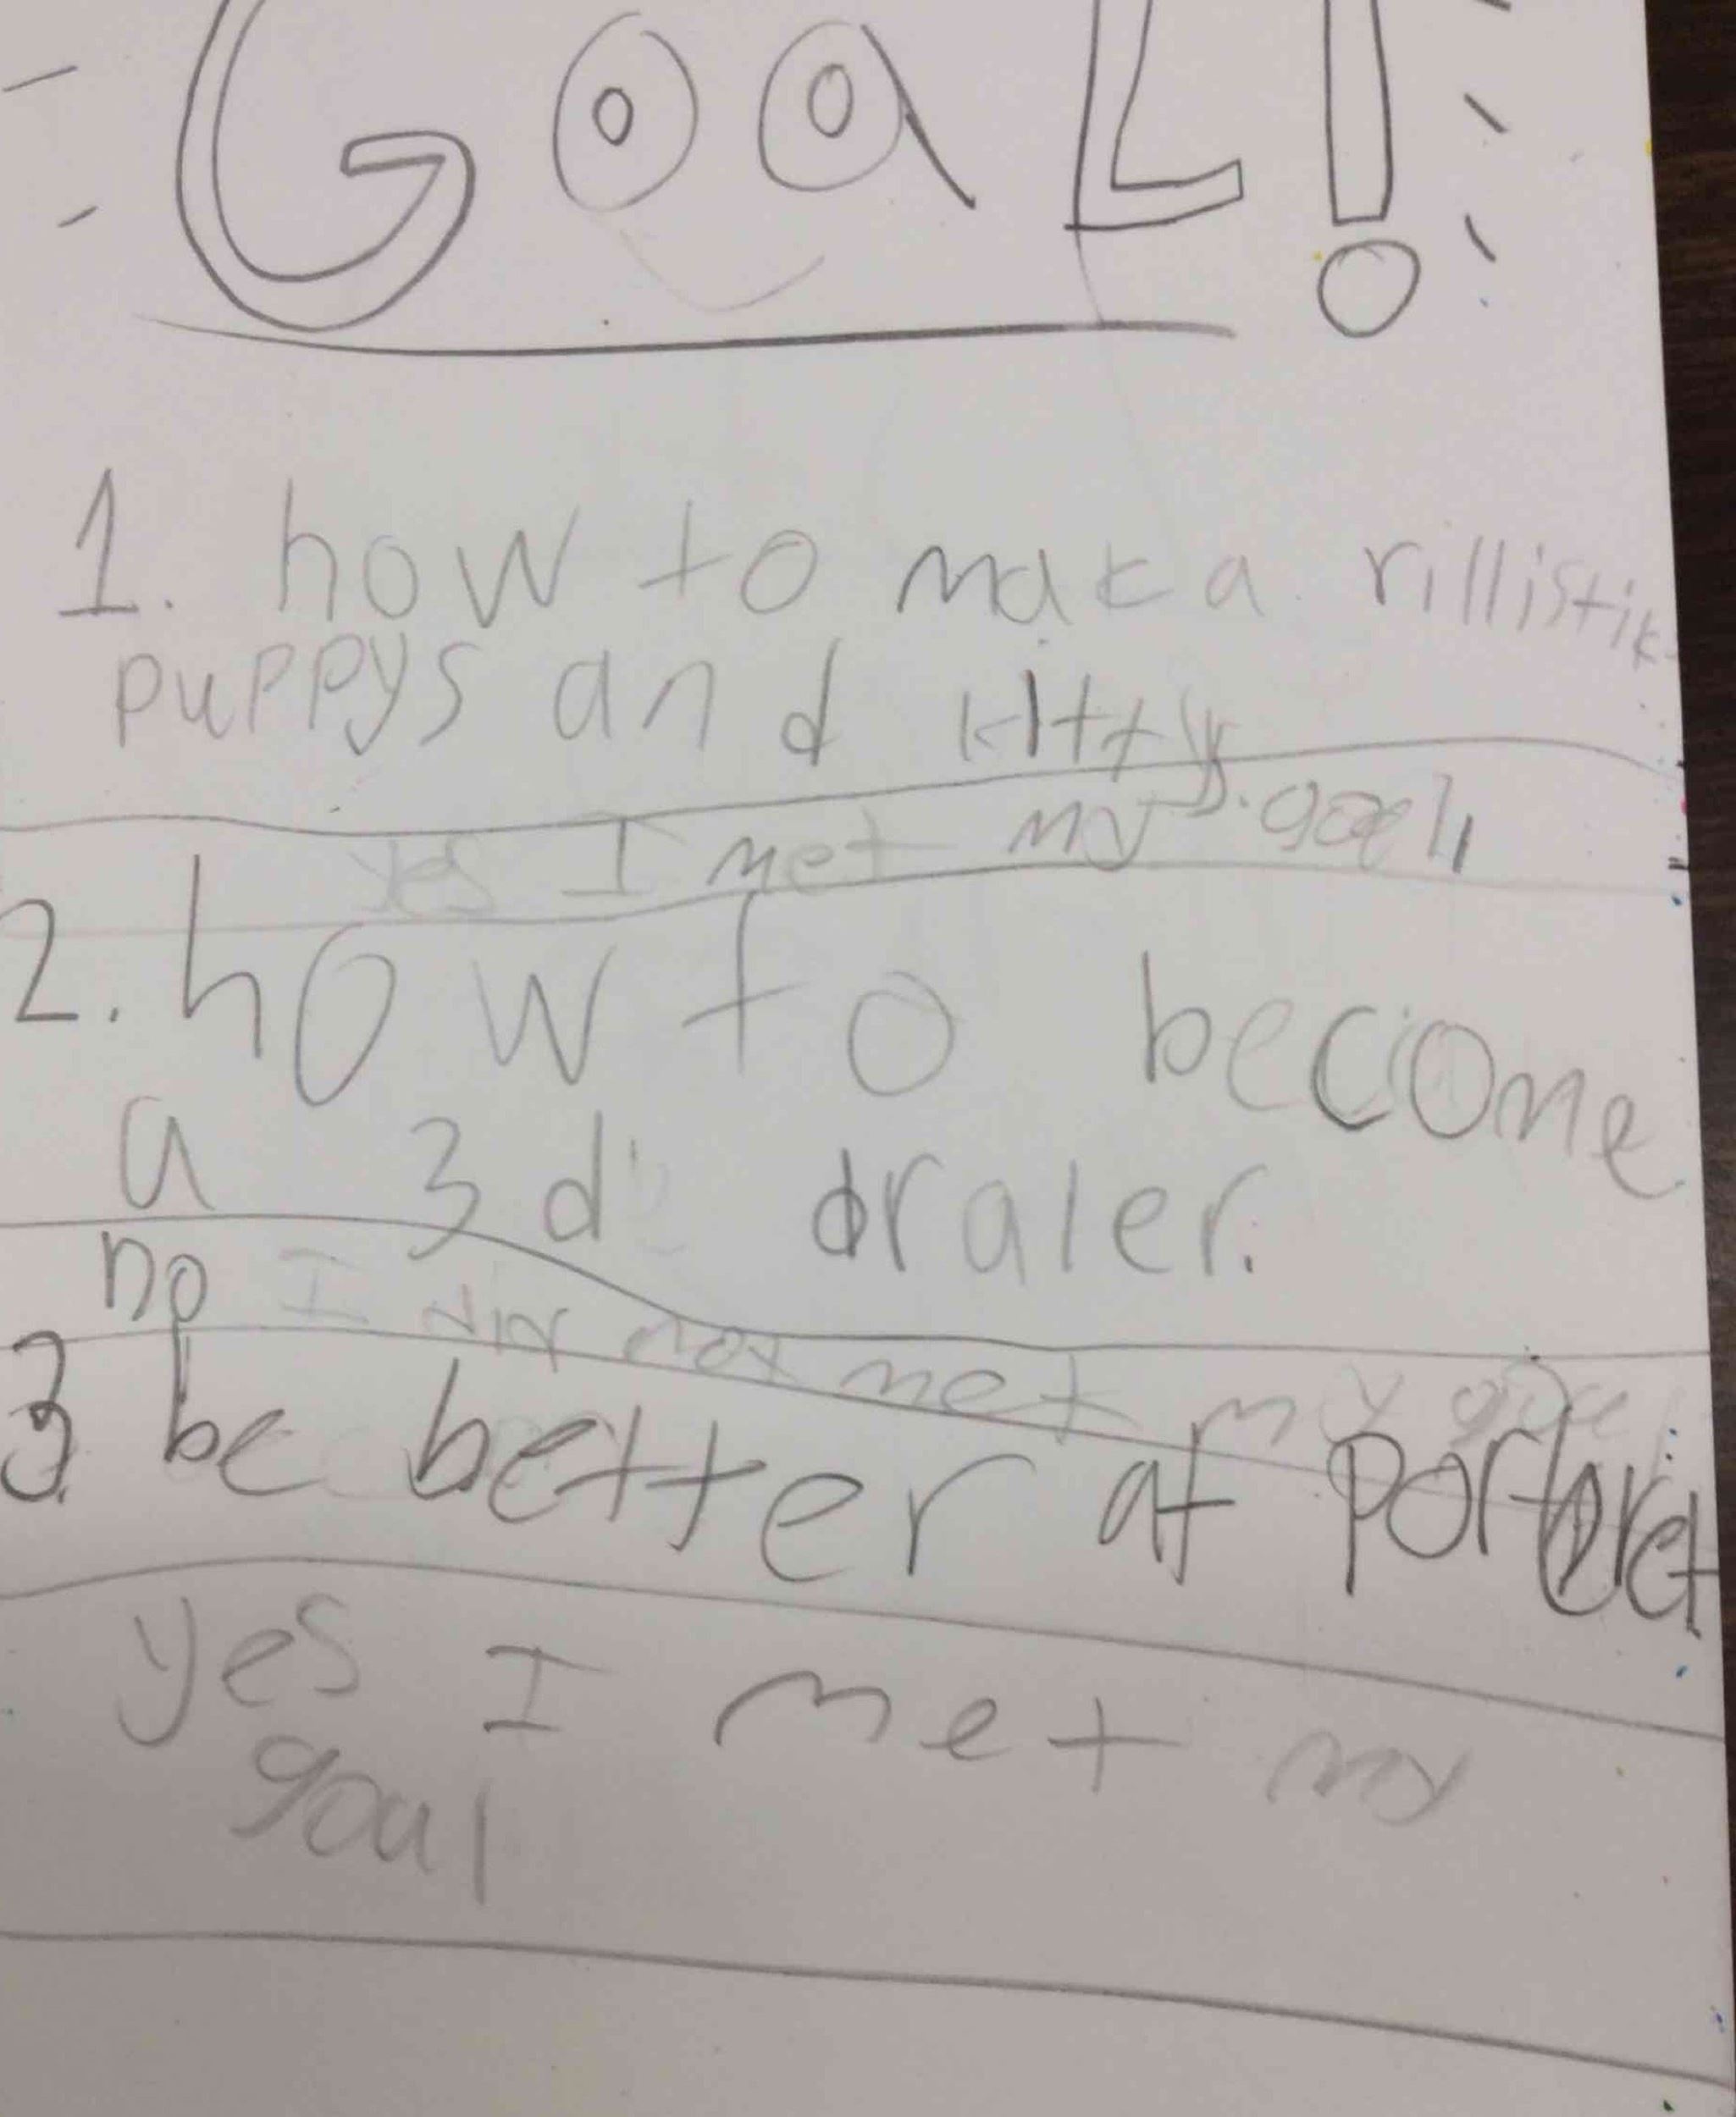 GOaL!
1. how to mak a rillistik
puppys and kittys.
yes I met my goal
2. how to become
a 3d draler.
no I did not met my goal
3. be better at portret
yes I met my
goal